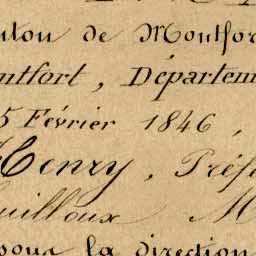 nton de Montfor
ntfort, Départem
5 Février 1846,
Henry, Préf
uilloux M
pour la direction